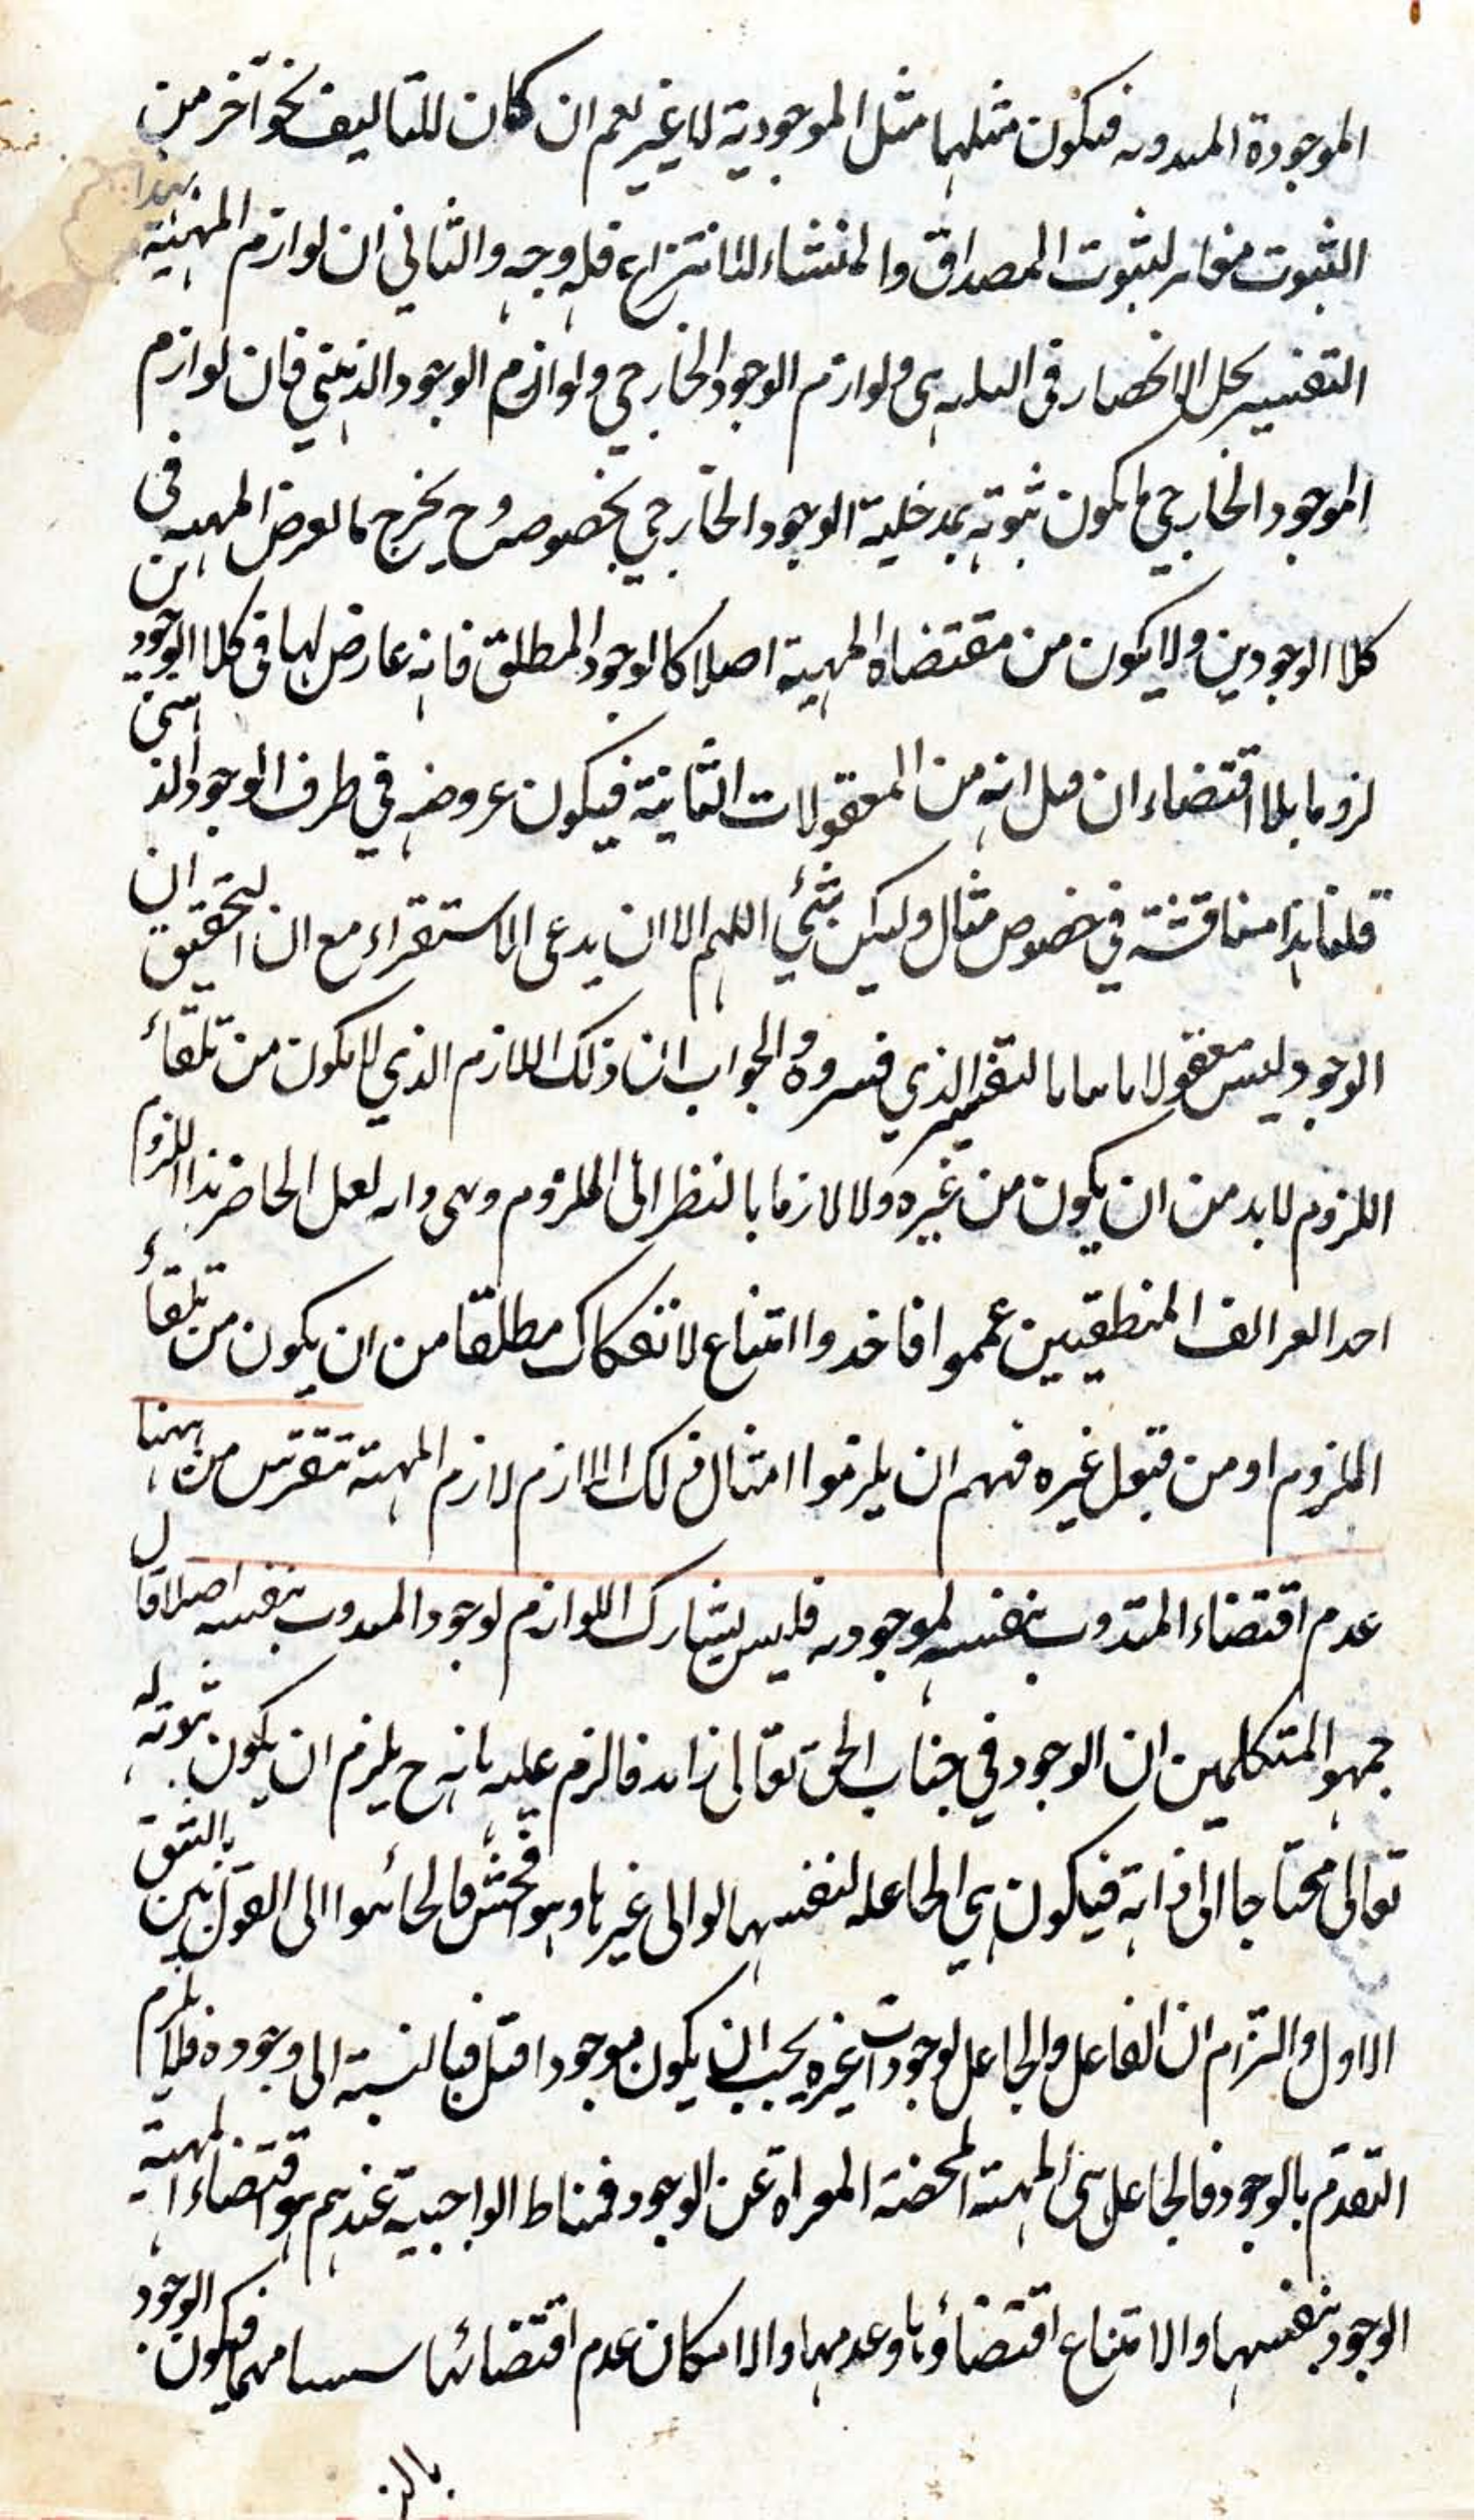 الموجودة المبدوبه فيكون مثلها مثل الموجودية لا غير نعم ان كان للتاليف نحو آخر من
الثبوت مغاير لثبوت المصداق والمنشاء للانتزاع فله وجه والثاني ان لوازم المهية بهذا
التفسير يخل الانحصار في الثلثة اى لوازم الوجود الخارجي ولوازم الوجود الذهني فان لوازم
الموجود الخارجي ما يكون ثبوته بمدخلية الوجود الخارجي بخصوصه وح يخرج ما لعرض المهية في
كلا الوجودين ولا يكون من مقتضاه المهية اصلا كالوجود المطلق فانه عارض لها في كلا الوجودين
لزوما بلا اقتضاء ان قيل انه من المعقولات الثانية فيكون عروضه في ظرف الوجود الذهني
قلنا هذا مناقشة في خصوص مثال وليس بشئ اللهم الا ان يدعى الاستقراء مع ان التحقيق ان
الوجود ليس معقولا ثانيا بالتفسير الذي فسروه والجواب ان ذلك اللازم الذي لا يكون من تلقاء
الملزوم لا بد من ان يكون من غيره والا لازما بالنظر الى الملزوم لعل الحاضر هذا اللزوم
احد المنطقيين عمموا فاخذوا امتناع الانفكاك مطلقا من ان يكون من تلقاء
الملزوم او من قبل غيره فلهم ان يلزموا امثال ذلك اللازم لازم المهية من ههنا
عدم اقتضاء بنفسه لموجوديه فليس يشارك اللوازم لوجود بنفسه اصلا قال
جمهور المتكلمين ان الوجود في جناب الحق تعالى زائد فالزم عليه بانه ح يلزم ان يكون ثبوته له
تعالى محتاجا الى ذاته فيكون هي الجاعله لنفسها او الى غيرها وهو افحش فالجائوا الى القول بالشق
الاول والتزام ان الفاعل والجاعل لوجودات غيره يجب ان يكون موجودا قبل بالنسبة الى وجوده فلا يلزم
التقدم بالوجود فالجاعل هي المهية المحضة المعراة عن الوجود فمناط الواجبية عندهم هو اقتضاء المهية
الوجود بنفسها والامتناع اقتضاؤها وعدمها والامكان عدم اقتضائها شيئا منهما فيكون الوجود
بالذ